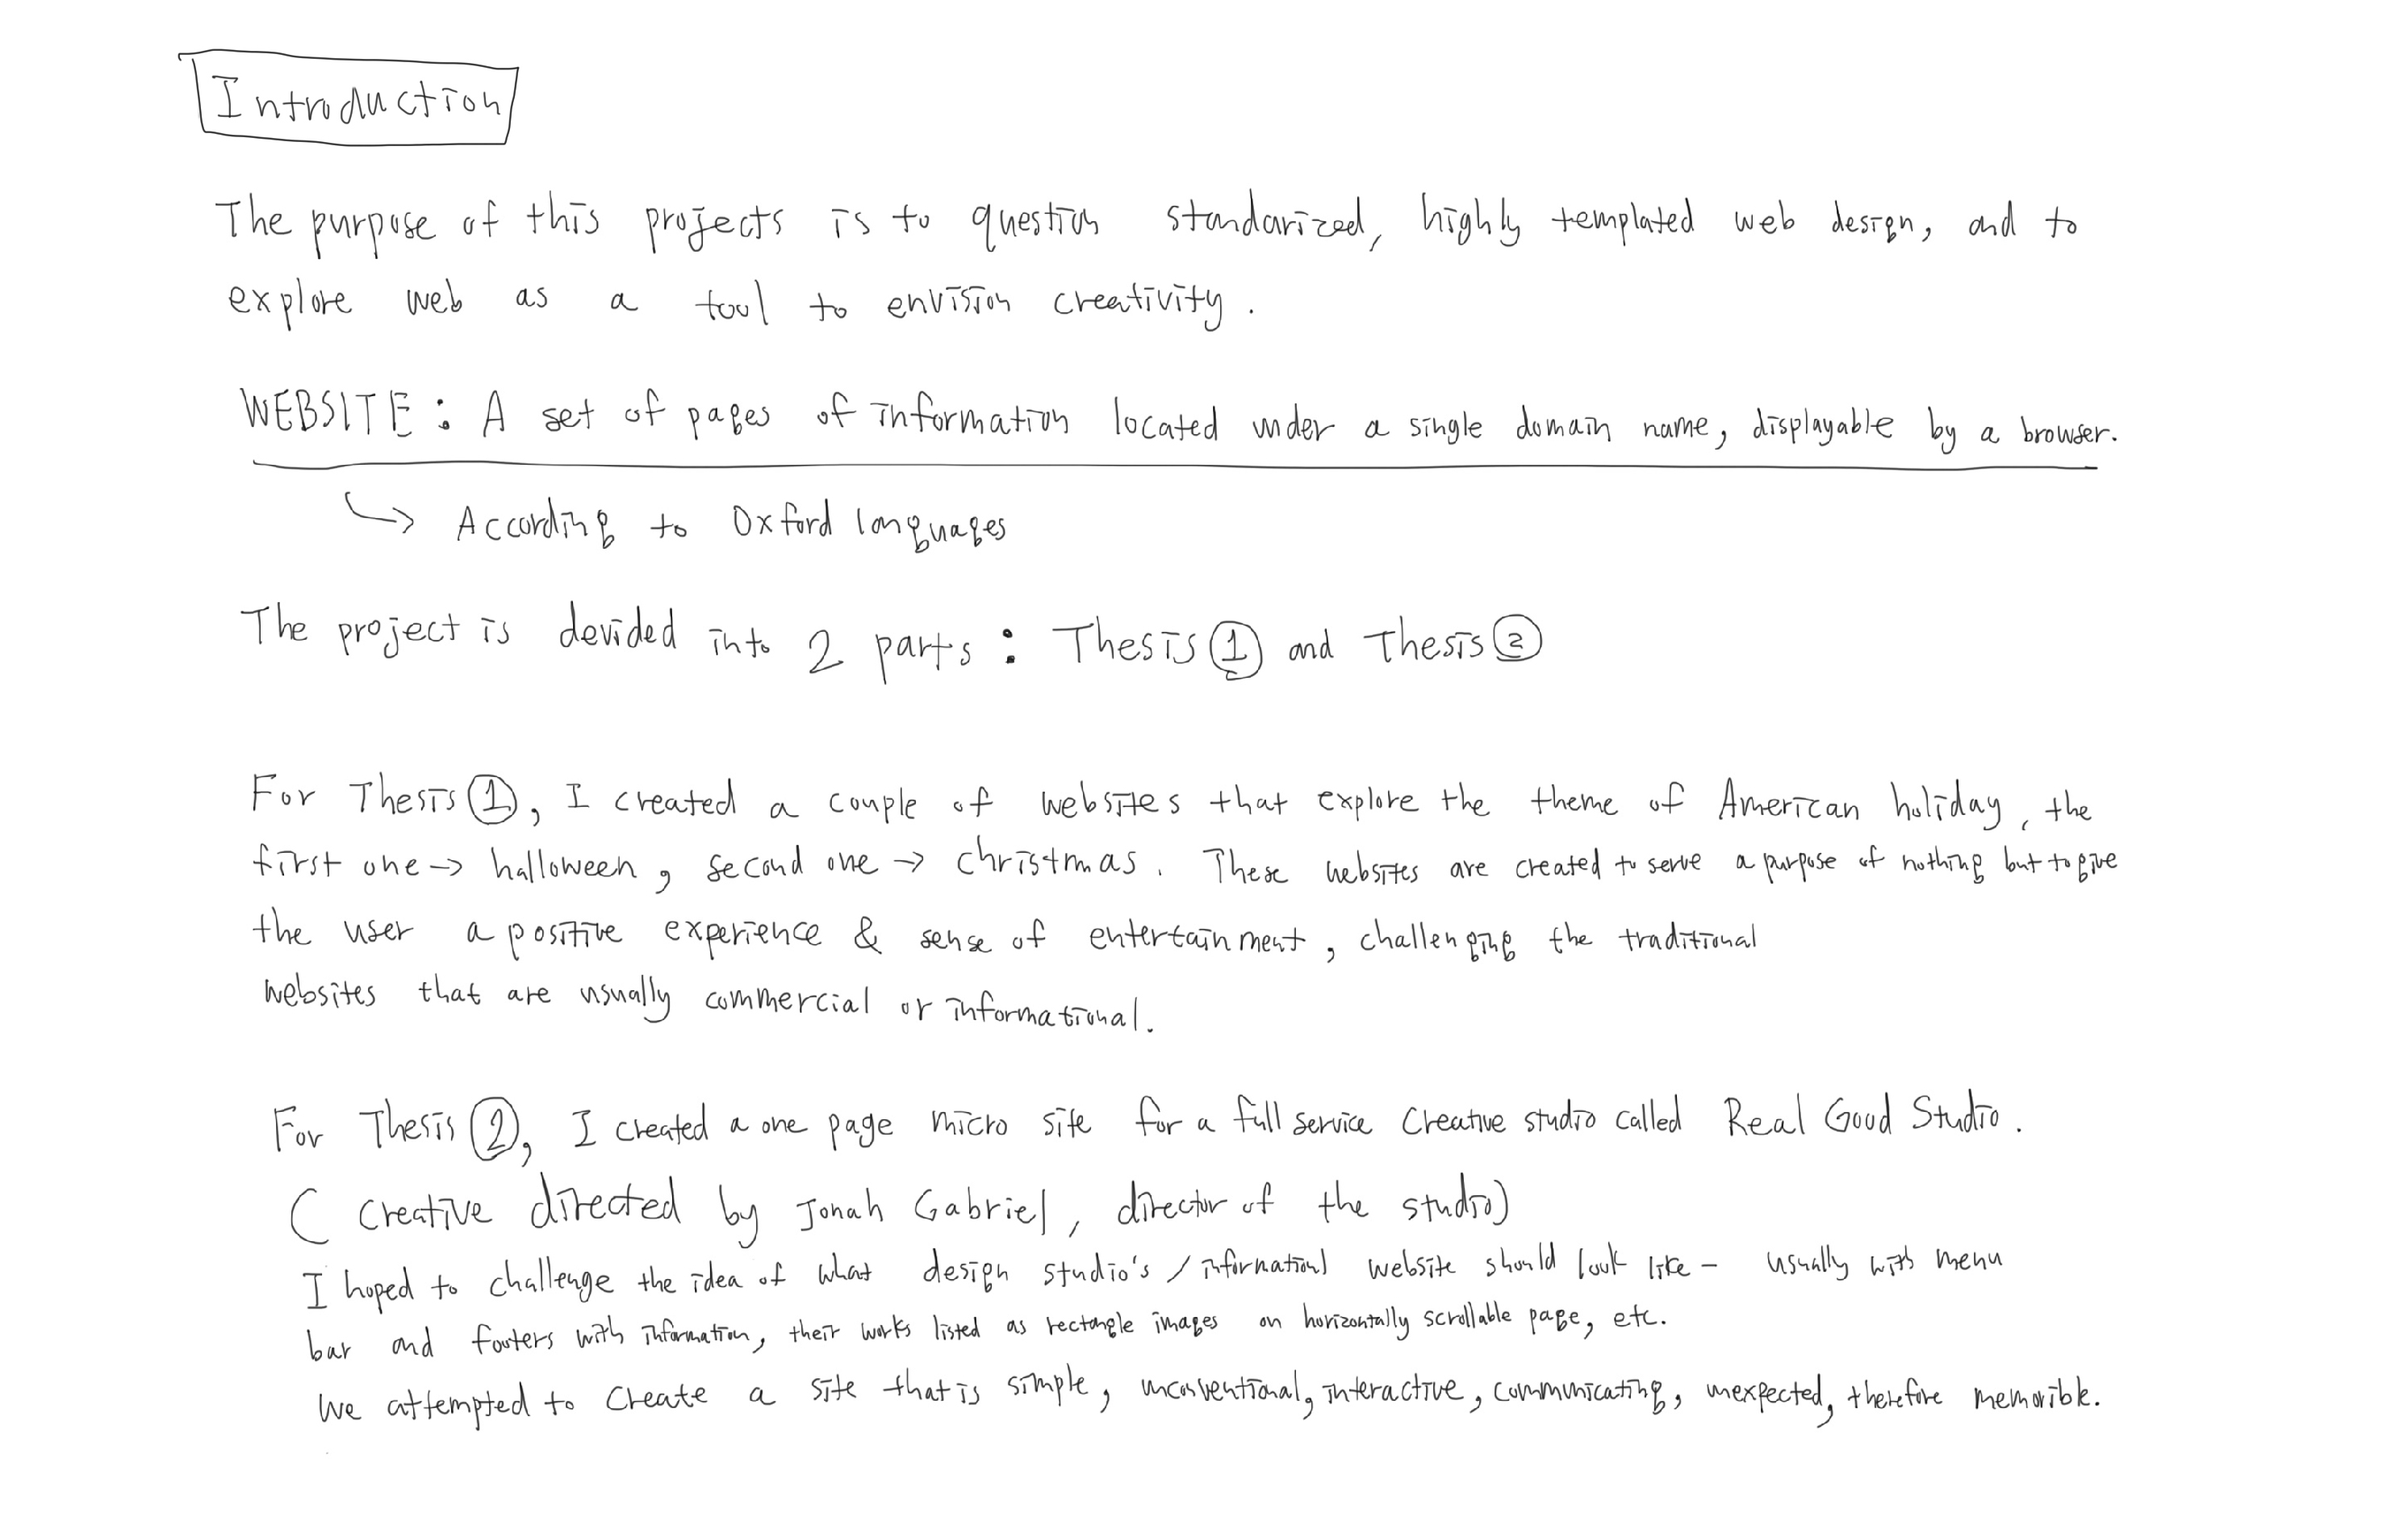 Introduction
The purpose of this projects is to question standarized, highly templated web design, and to
explore web as a tool to envision creativity.
WEBSITE: A set of pages of information located under a single domain name, displayable by a browser.
↳ According to Oxford languages
The project is devided into 2 parts: Thesis ① and Thesis ②
For Thesis ①, I created a couple of websites that explore the theme of American holiday, the
first one → halloween, second one → christmas. These websites are created to serve a purpose of nothing but to give
the user a positive experience & sense of entertainment, challenging the traditional
websites that are usually commercial or informational.
For Thesis ②, I created a one page micro site for a full service Creative studio called Real Good Studio.
( Creative directed by Jonah Gabriel, director of the studio)
I hoped to challenge the idea of what design studio's / informationl website should look like – usually with menu
bar and footers with information, their works listed as rectangle images on horizontally scrollable page, etc.
We attempted to create a site that is simple, unconventional, interactive, communicating, unexpected, therefore memorible.